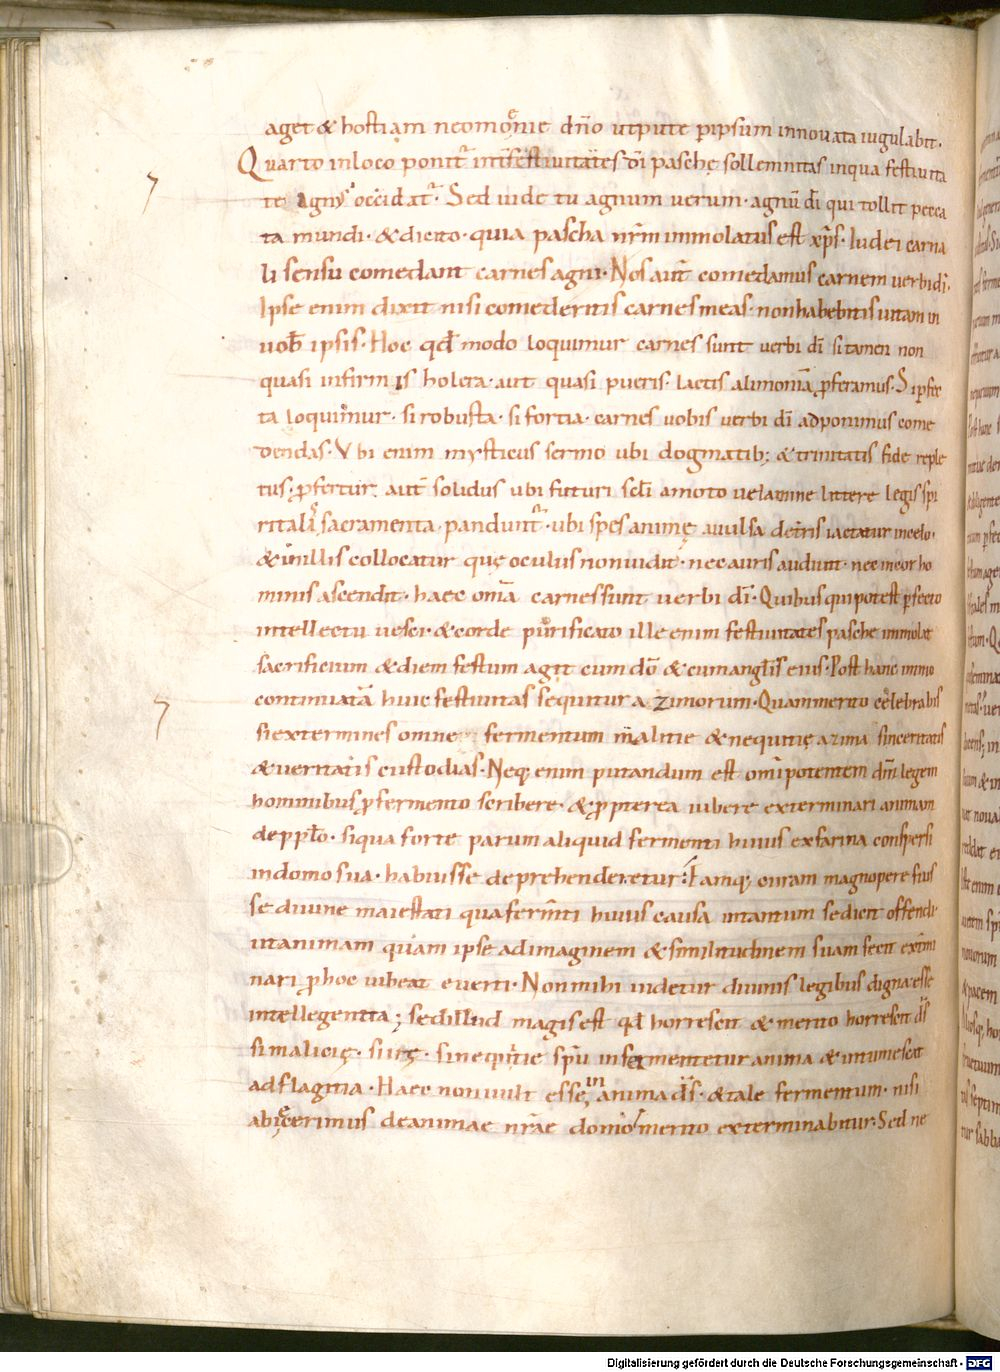 aget & hostiam neomoniæ dn̄o utpute p ipsum innouata iugulabit.
Quarto inloco ponit᷑ int̄ festiuitates dī paschę sollemnitas inqua festiuita
te agnus occidat᷑. Sed uide tu agnum uerum. agnū dī qui tollit pecca
ta mundi. & dicito. quia pascha nr̄m immolatus est xp̄s. Iudei carna
li sensu comedant carnes agni. Nos aut̄ comedamus carnem uerbi dī.
Ipse enim dixit nisi comederitis carnes meas. non habebitis uitam in
uob ipsis. Hoc qđ modo loquimur carnes sunt uerbi dī si tamen non
quasi infirmis holera. aut quasi pueris. lactis alimoniā ꝓferamus. Si pfec
ta loquimur. si robusta. si fortia. carnes uobis uerbi dī adponimus come
dendas. Vbi enim mysticus sermo ubi dogmatib; & trinitatis fide reple
tus. ꝓfertur aut̄ solidus ubi futuri scłi amoto uelamine littere legis spi
ritalis sacramenta pandunt᷑. ubi spes animę auulsa deterris iactatur incelo.
& inillis collocatur quę oculus nonuidit. nec auris audiuit. nec incor ho
minis ascendit. haec om̄ia carnes sunt uerbi dī. Quibus qui potest pfecto
intellectu uesci. & corde purificato ille enim festiuitates pasche immolat
sacrificium & diem festum agit cum dō & cum anglis eius. Post hanc immo
continuatā huic festiuitas sequitur azimorum. Quam merito celebrabis
si extermines omne fermentum malitie & nequitię azima sinceritatis
& ueritatis custodias. Neq; enim putandum est omīpotentem dm̄ legem
hominibus ꝓ fermento scribere. & ꝓpterea iubere exterminari animam
de pplo. siqua forte parum aliquid fermenti huius exfarina conspersi
in domo sua. habuisse deprehenderetur. Tamq; curam magnopere fuis
se diuine maiestati qua ferm̄ti huius causa intantum se dicit offendi.
ut animam quam ipse adimaginem & similitudinem suam fecit extmi
nari ꝓ hoc iubeat euerti. Non mihi uidetur diuinis legibus digna esse
intellegentia; sed illud magis est qđ horrescit & merito horrescit d̄s
si malicię. si irę. si nequitię spū infermentetur anima & intumescat
ad flagitia. Haec non uult esse in anima d̄s. & tale fermentum. nisi
abiecerimus de animae nr̄ae domo merito exterminabitur. Sed ne
Digitalisierung gefördert durch die Deutsche Forschungsgemeinschaft - DFG